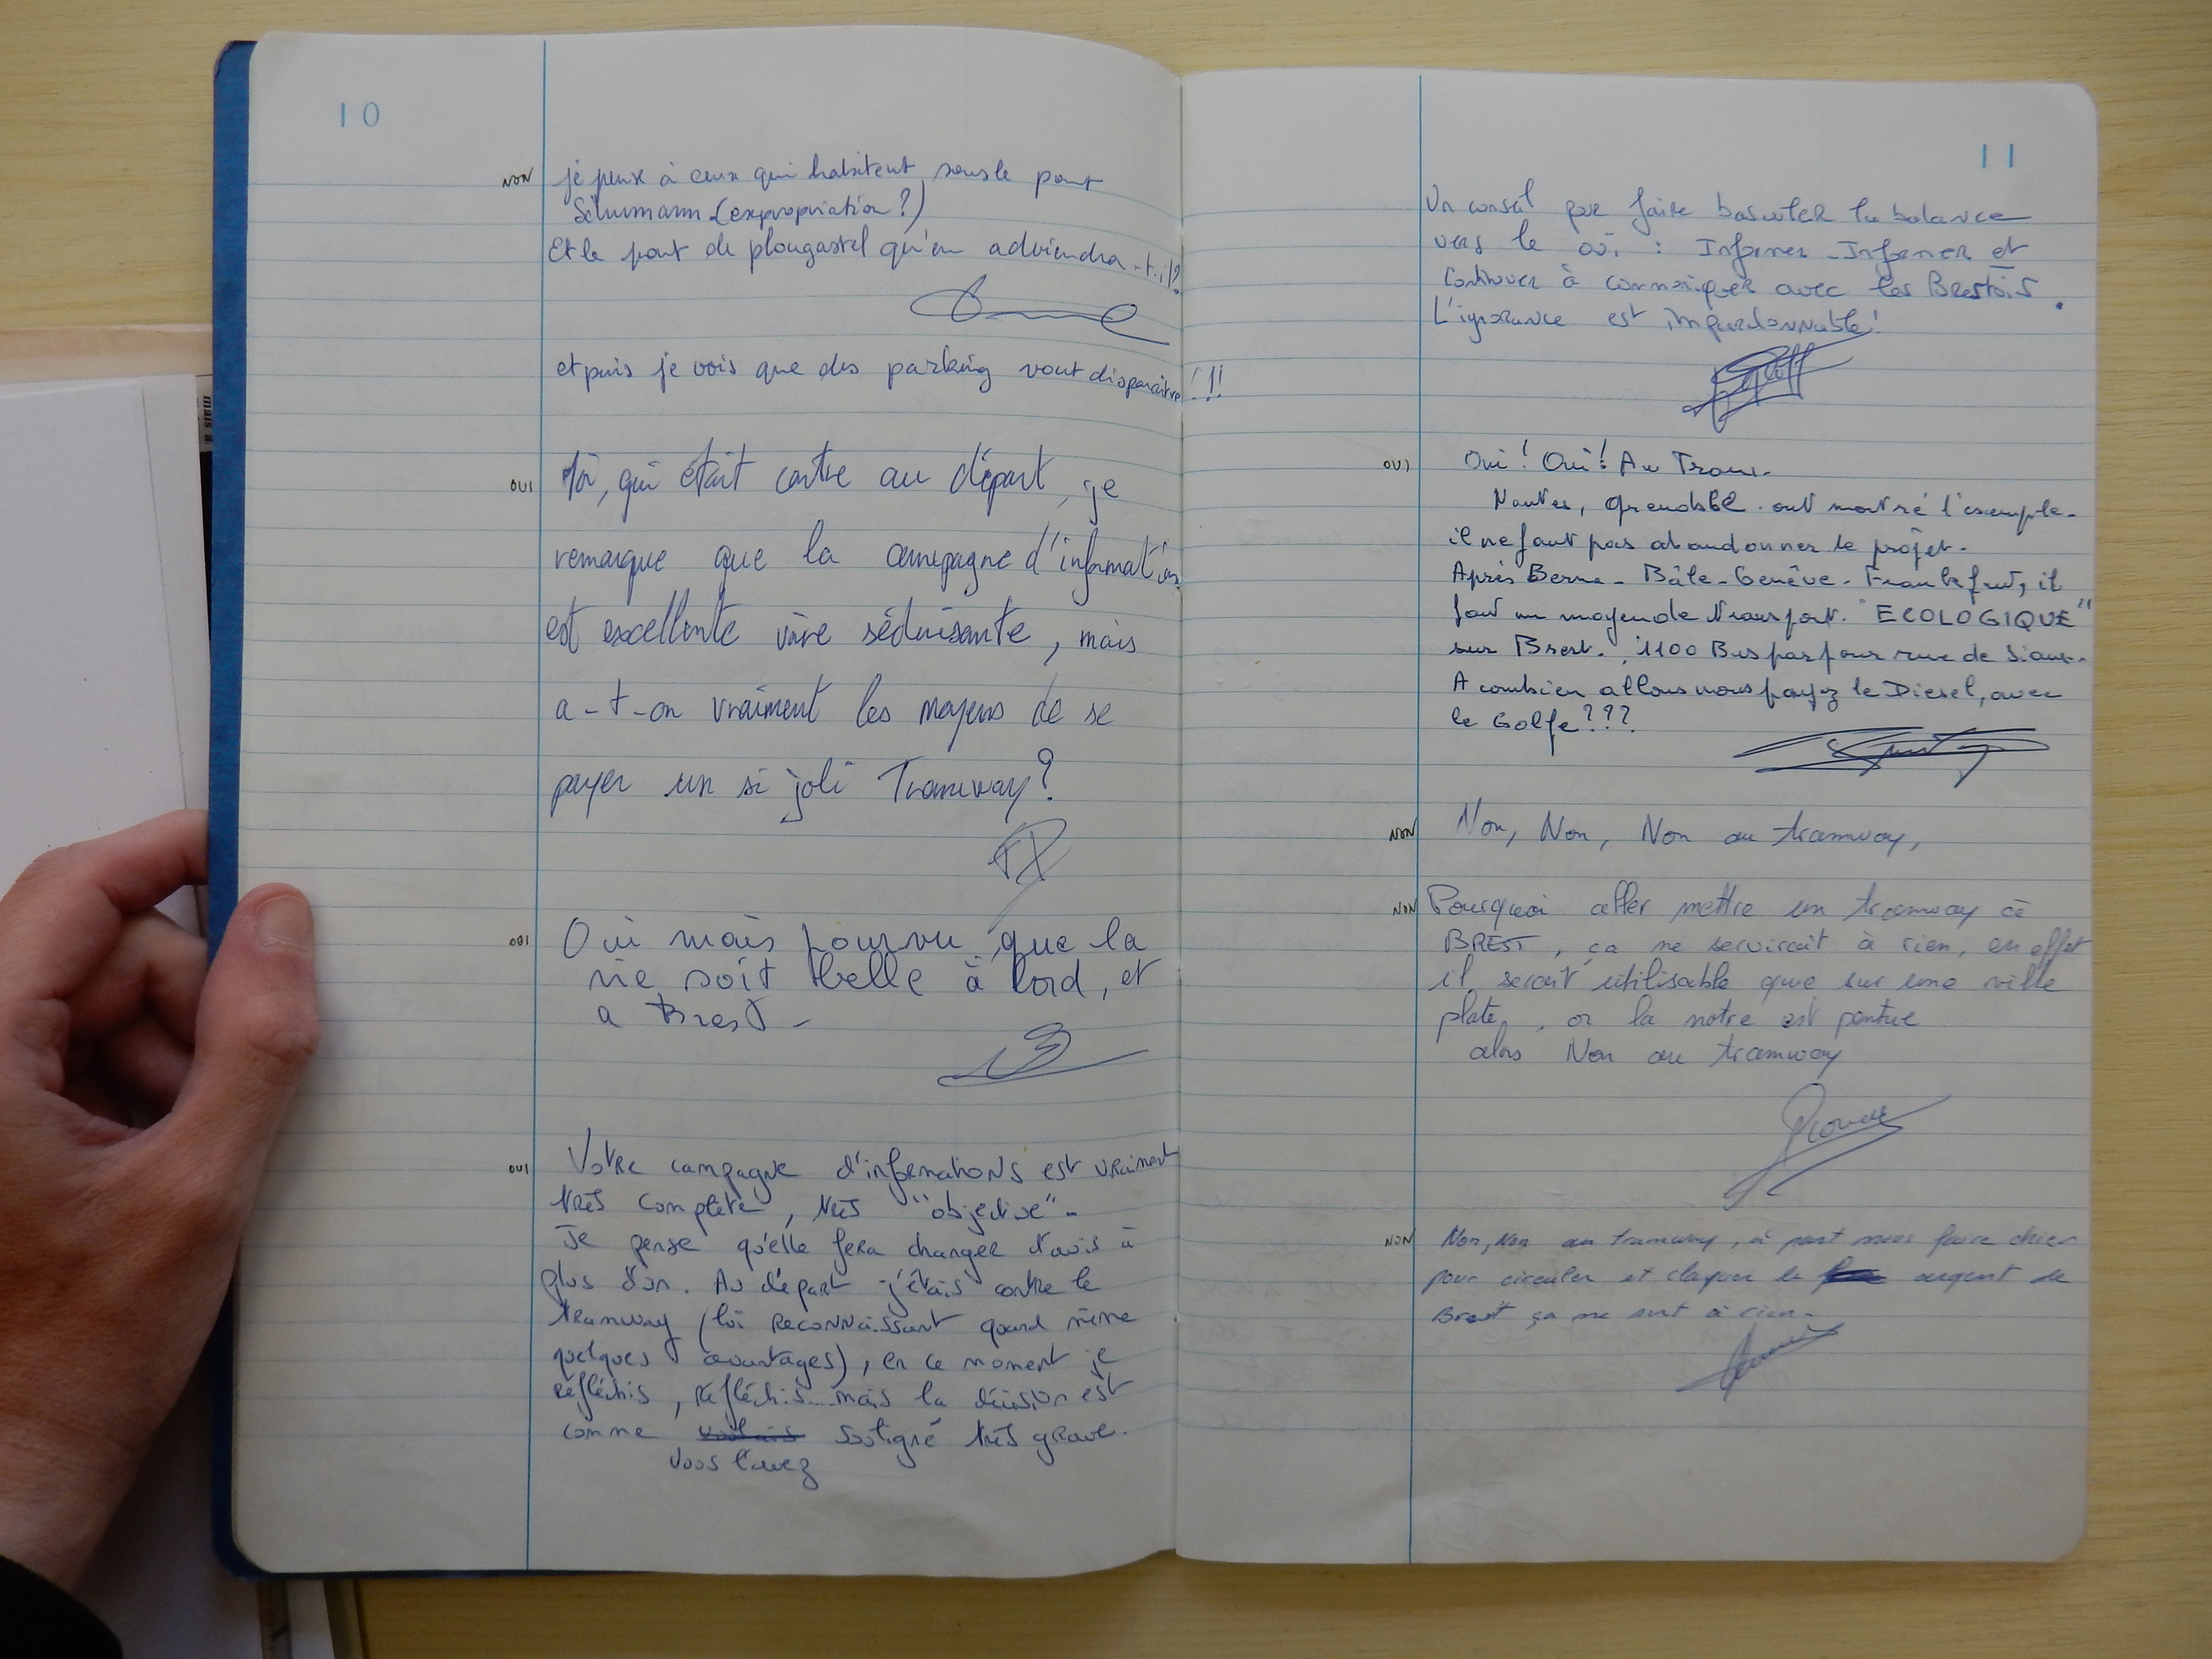 10
NON je pense à ceux qui habitent sous le pont
Schumann (expropriation?)
Et le pont de plougastel qu'en adviendra-t-il?
et puis je vois que des parking vont disparaitre!!!
OUI Moi, qui était contre au départ, je
remarque que la campagne d'information
est excellente voire séduisante, mais
a-t-on vraiment les moyens de se
payer un si joli Tramway?
OUI Oui mais pourvu que la
vie soit belle à bord, et
a Brest -
OUI Votre campagne d'informations est vraiment
très complète, très "objective".
Je pense qu'elle fera changer d'avis à
plus d'un. Au départ j'étais contre le
tramway (lui reconnaissant quand même
quelques avantages), en ce moment je
réfléchis, réfléchis... mais la décision est
comme souligné très grave.
vous l'avez
11
Un conseil pour faire basculer la balance
vers le oui : Informer - Informer et
Continuer à communiquer avec les Brestois.
L'ignorance est impardonnable!
OUI Oui! Oui! Au Tram.
Nantes, Grenoble ont montré l'exemple.
il ne faut pas abandonner le projet.
Après Berne - Bâle - Genève - Frankfurt, il
faut un moyen de transport "ECOLOGIQUE"
sur Brest. 1100 Bus par jour rue de Siam.
A combien allons nous payez le Diesel, avec
le Golfe???
NON Non, Non, Non au tramway,
NON Pourquoi aller mettre un tramway à
BREST, ça ne servirait à rien, en effet
il serait utilisable que sur une ville
plate, or la notre est pentue
alors Non au tramway
NON Non, Non au tramway, à part nous faire chier
pour circuler et claquer le argent de
Brest ça ne sert à rien.